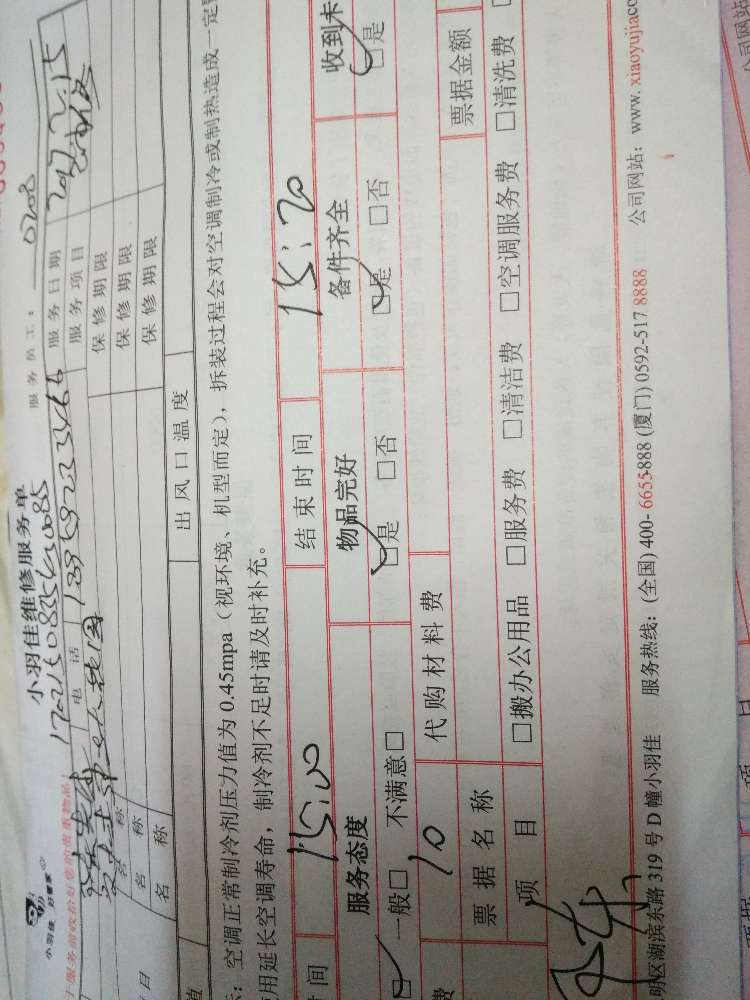 小羽佳维修服务单
小羽佳 好管家
服务员工： 0208
于服务前收拾好您的贵重物品！
电话
服务日期 2017.2.15
服务项目
名称
保修期限
名称
保修期限
名称
保修期限
出风口温度
：空调正常制冷剂压力值为 0.45mpa（视环境、机型而定），拆装过程会对空调制冷或制热造成一定
用延长空调寿命，制冷剂不足时请及时补充。
时间 15:00 结束时间 15:20
服务态度 物品完好 备件齐全 收到卡
一般□ 不满意□ □是 □否 □是 □否 □是
费 10 代购材料费
票据名称 票据金额
项目 □搬办公用品 □服务费 □清洁费 □空调服务费 □清洗费
明区湖滨东路 319 号 D 幢小羽佳 服务热线：(全国) 400-6655-888 (厦门) 0592-517 8888 公司网站：www.xiaoyujia.co
公司网站